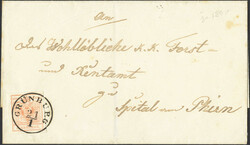 An
Das Wohllöbliche k. k. Forst-
und Rentamt
zu
Spital am Phirn
GRÜNBURG